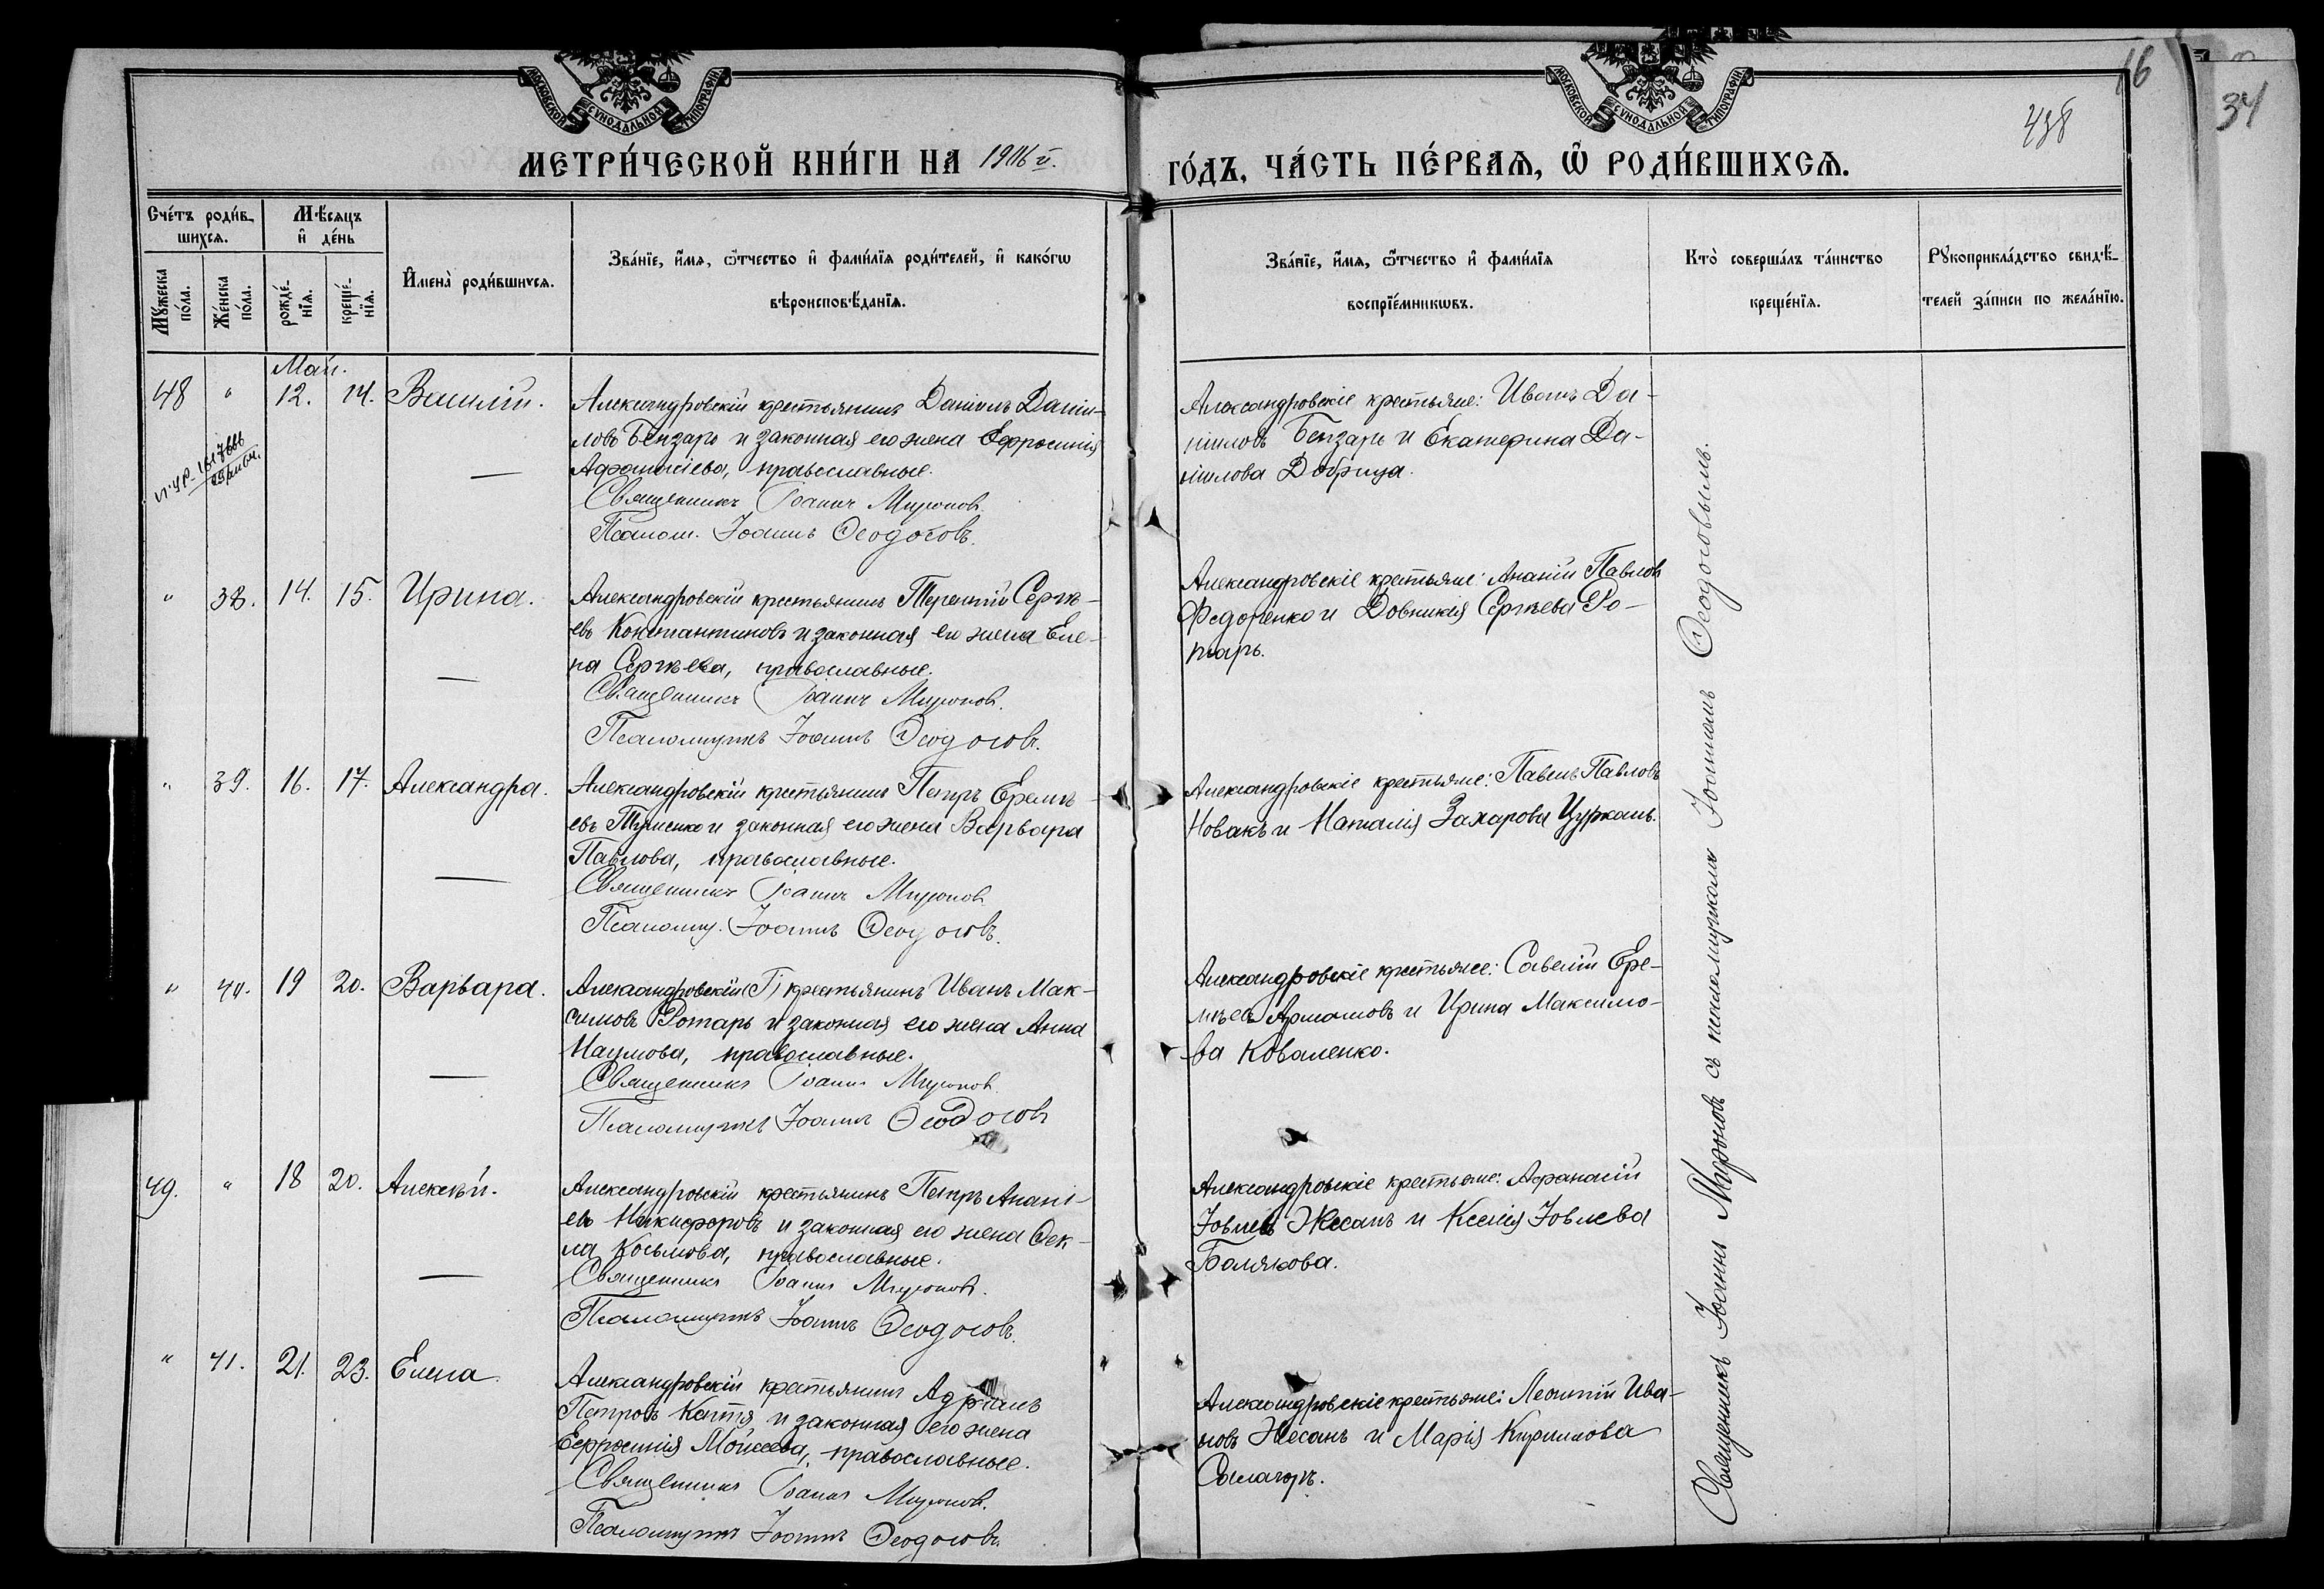 МОСКОВСКОЙ СѴНОДАЛЬНОЙ ТИПОГРАФІИ
МОСКОВСКОЙ СѴНОДАЛЬНОЙ ТИПОГРАФІИ
16
34
438
МЕТРИ́ЧЕСКОЙ КНИ́ГИ НА 1916 й.
ГО́ДЪ, ЧА́СТЬ ПЕ́РВАѦ, Ѽ РОДИ́ВШИХСѦ.
Сче́тъ роди́в-
шихсѧ.
Мѣ́сѧцъ
и҆ де́нь
Мꙋ́жеска
по́ла.
Же́нска
по́ла.
рожде́-
нїѧ.
креще́-
нїѧ.
И҆мена̀ роди́вшихсѧ.
Зва́нїе, и҆́мѧ, ѻ҆́тчество и҆ фами́лїѧ роди́телей, и҆ како́гѡ
вѣроисповѣ́данїѧ.
Зва́нїе, и҆́мѧ, ѻ҆́тчество и҆ фами́лїѧ
воспрїе́мникѡвъ.
Кто̀ соверша́лъ та́инство
креще́нїѧ.
Рꙋкоприкла́дство свидѣ́-
телей за́писи по жела́нїю.
Май.
48 " 12. 14. Василій.
Александровскій крестьянинъ Даніилъ Даніи-
ловъ Бензарь и законная его жена Ефросинія
Афанасіева, православные.
Священникъ Іоаннъ Мироновъ.
Псалом. Іоаннъ Ѳеодосовъ.
Александровскіе крестьяне: Иванъ Да-
ніиловъ Бензарь и Екатерина Да-
ніилова Добрица.
" 38. 14. 15. Ирина.
Александровскій крестьянинъ Терентій Сергѣ-
евъ Константиновъ и законная его жена Еле-
на Сергѣева, православные.
Священникъ Іоаннъ Мироновъ.
Псаломщикъ Іоаннъ Ѳеодосовъ.
Александровскіе крестьяне: Ананій Павловъ
Федоренко и Довникія Сергѣева Ро-
тарь.
" 39. 16. 17. Александра.
Александровскій крестьянинъ Петръ Еремѣ-
евъ и законная его жена Варвара
Павлова, православные.
Священникъ Іоаннъ Мироновъ.
Псаломщ. Іоаннъ Ѳеодосовъ.
Александровскіе крестьяне: Павелъ Павловъ
Новакъ и Наталія Захарова Цурканъ.
" 40. 19 20. Варвара.
Александровскій крестьянинъ Иванъ Мак-
симовъ Ротарь и законная его жена Анна
Наумова, православные.
Священникъ Іоаннъ Мироновъ
Псаломщикъ Іоаннъ Ѳеодосовъ
Александровскіе крестьяне: Савелій Ере-
мѣевъ и Ирина Максимо-
ва Коваленко.
49. " 18 20. Алексѣй.
Александровскій крестьянинъ Петръ Анані-
евъ Никифоровъ и законная его жена Ѳек-
ла Косьмова, православные.
Священникъ Іоаннъ Мироновъ.
Псаломщикъ Іоаннъ Ѳеодосовъ.
Александровскіе крестьяне: Афанасій
Іовлевъ Жесанъ и Ксенія Іовлева
Болякова.
" 41. 21. 23. Елена.
Александровскій крестьянинъ Адріанъ
Петровъ и законная его жена
Ефросинія Мойсеева, православные.
Священникъ Іоаннъ Мироновъ.
Псаломщикъ Іоаннъ Ѳеодосовъ.
Александровскіе крестьяне: Леонтій Ива-
новъ Жесанъ и Марія Кириллова
Священникъ Іоаннъ Мироновъ съ псаломщикомъ Іоанномъ Ѳеодосовымъ.